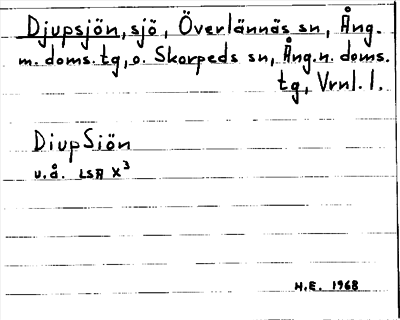 Djupsjön, sjö, Överlännäs sn, Ång.
m. doms. tg, o. Skorpeds sn, Ång. n. doms.
tg, Vrnl. l.
DiupSiön
u.å. LSA X³
H.E. 1968